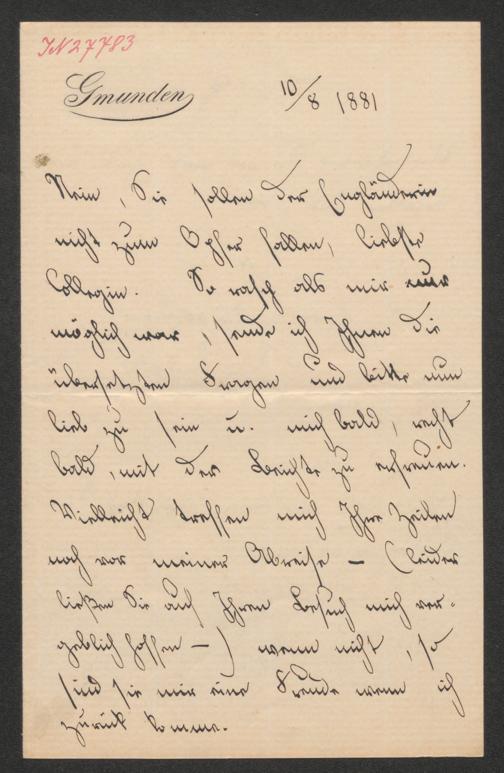 IN 27783
Gmunden
10/8 1881
Nein, Sie sollen der Engländerin
nicht zum Opfer fallen, liebste
Collegin. So rasch als mir nur
möglich war, sende ich Ihnen die
übersetzten Fragen und bitte nun
lieb zu sein u. mich bald, recht
bald, mit der Beichte zu erfreuen.
Vielleicht treffen mich Ihre Zeilen
noch vor meiner Abreise – (leider
ließen Sie auf Ihren Besuch mich ver-
geblich hoffen –) wenn nicht, so
sind sie mir eine Freude wenn ich
zurück komme.